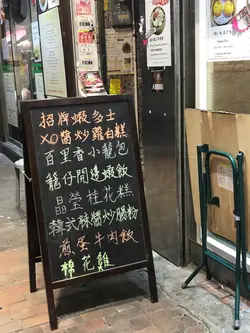 招牌蝦多士
XO醬炒蘿白糕
百里香小籠包
籠仔開邊蝦飯
晶瑩桂花糕
韓式辣醬炒腸粉
煎蛋牛肉飯
棉花雞